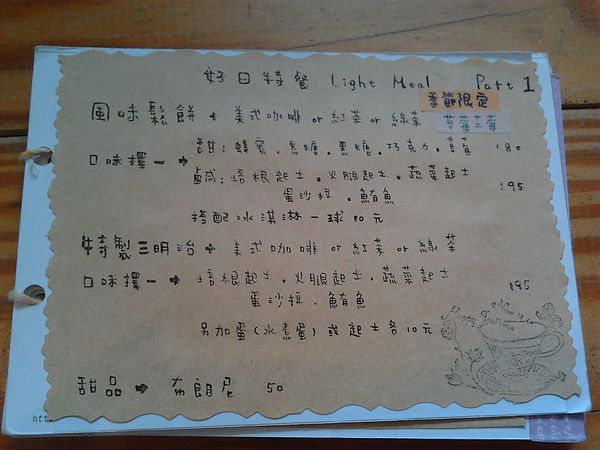 好日特餐 Light Meal Part 1
季節限定
風味鬆餅 + 美式咖啡 or 紅茶 or 綠茶
草莓三莓
口味擇一 → 甜:蜂蜜.焦糖.黑糖.巧克力.草莓 180
鹹:培根起士.火腿起士.蔬菜起士 195
蛋沙拉.鮪魚
搭配冰淇淋一球10元
特製三明治 + 美式咖啡 or 紅茶 or 綠茶
口味擇一 → 培根起士.火腿起士.蔬菜起士 195
蛋沙拉.鮪魚
另加蛋(水煮蛋)或起士各10元
甜品 → 布朗尼 50
Happy